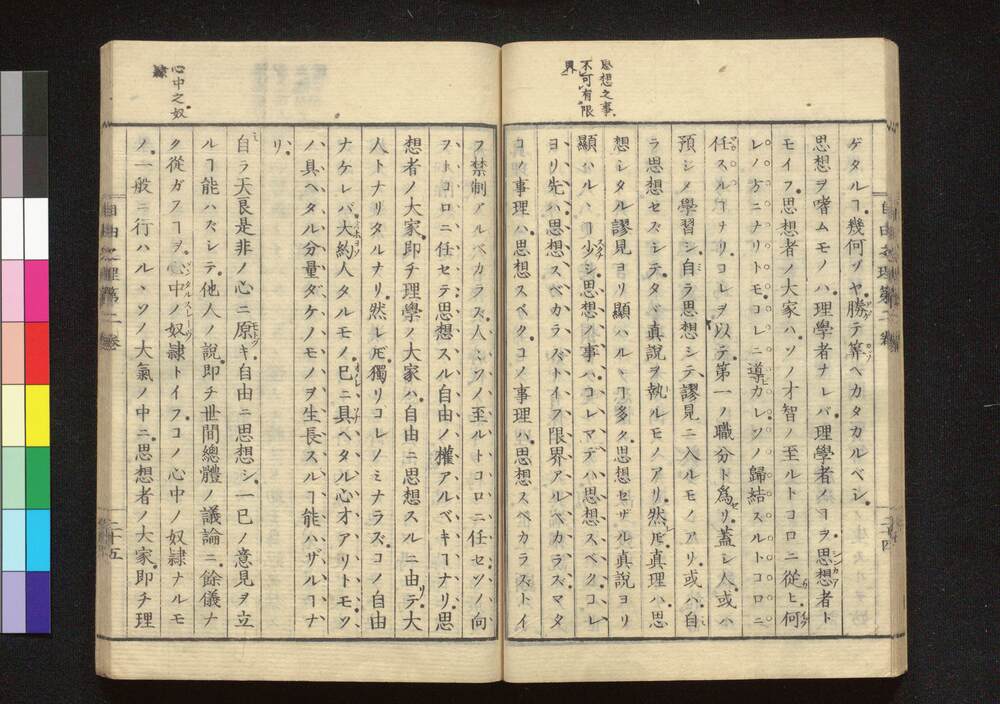 思想之事
不可有限
界
ゲタルヿ幾何ゾヤ勝テ筭ヘカタカルベシ
思想ヲ嗜ムモノハ理學者ナレバ理學者ノヿヲ思想者ト
モイフ思想者ノ大家ハソノ才智ノ至ルトコロニ從ヒ何
レノ方ニナリトモコレニ導カレソノ歸結スルトコロニ
任スルヿナリコレヲ以テ第一ノ職分ト爲リ蓋シ人或ハ
預シメ學習シ自ラ思想シテ謬見ニ入ルモノアリ或ハ自
ラ思想セズシテタヾ真説ヲ執ルモノアリ然𪜈真理ハ思
想シタル謬見ヨリ顯ハルヽヿ多ク思想セザル真説ヨリ
顯ハルヽヿ少シ思想ノ事ハコレマデハ思想スベクコレ
ヨリ先ハ思想スベカラズトイフ限界アルベカラスマタ
コノ事理ハ思想スベクコノ事理ハ思想スベカラストイ
自由之理第二卷
二十四
心中之奴
隷
フ禁制アルベカラス人々ソノ至ルトコロニ任セソノ向
ヲトコロニ任セテ思想スル自由ノ權アルベキヿナリ思
想者ノ大家即チ理學ノ大家ハ自由ニ思想スルニ由テ大
人トナリタルナリ然レ𪜈獨リコレノミナラズコノ自由
ナケレバ大約人タルモノ已ニ具ヘタル心才アリトモソ
ノ具ヘタル分量ダケノモノヲ生長スルヿ能ハザルヿナ
リ
自ラ天良是非ノ心ニ原キ自由ニ思想シ一己ノ意見ヲ立
ルヿ能ハズシテ他人ノ説即チ世間總體ノ議論ニ餘儀ナ
ク從ガフヿヲ心中ノ奴隷トイフコノ心中ノ奴隷ナルモ
ノ一般ニ行ハルヽソノ大氣ノ中ニ思想者ノ大家即チ理
自由之理第二卷
二十五